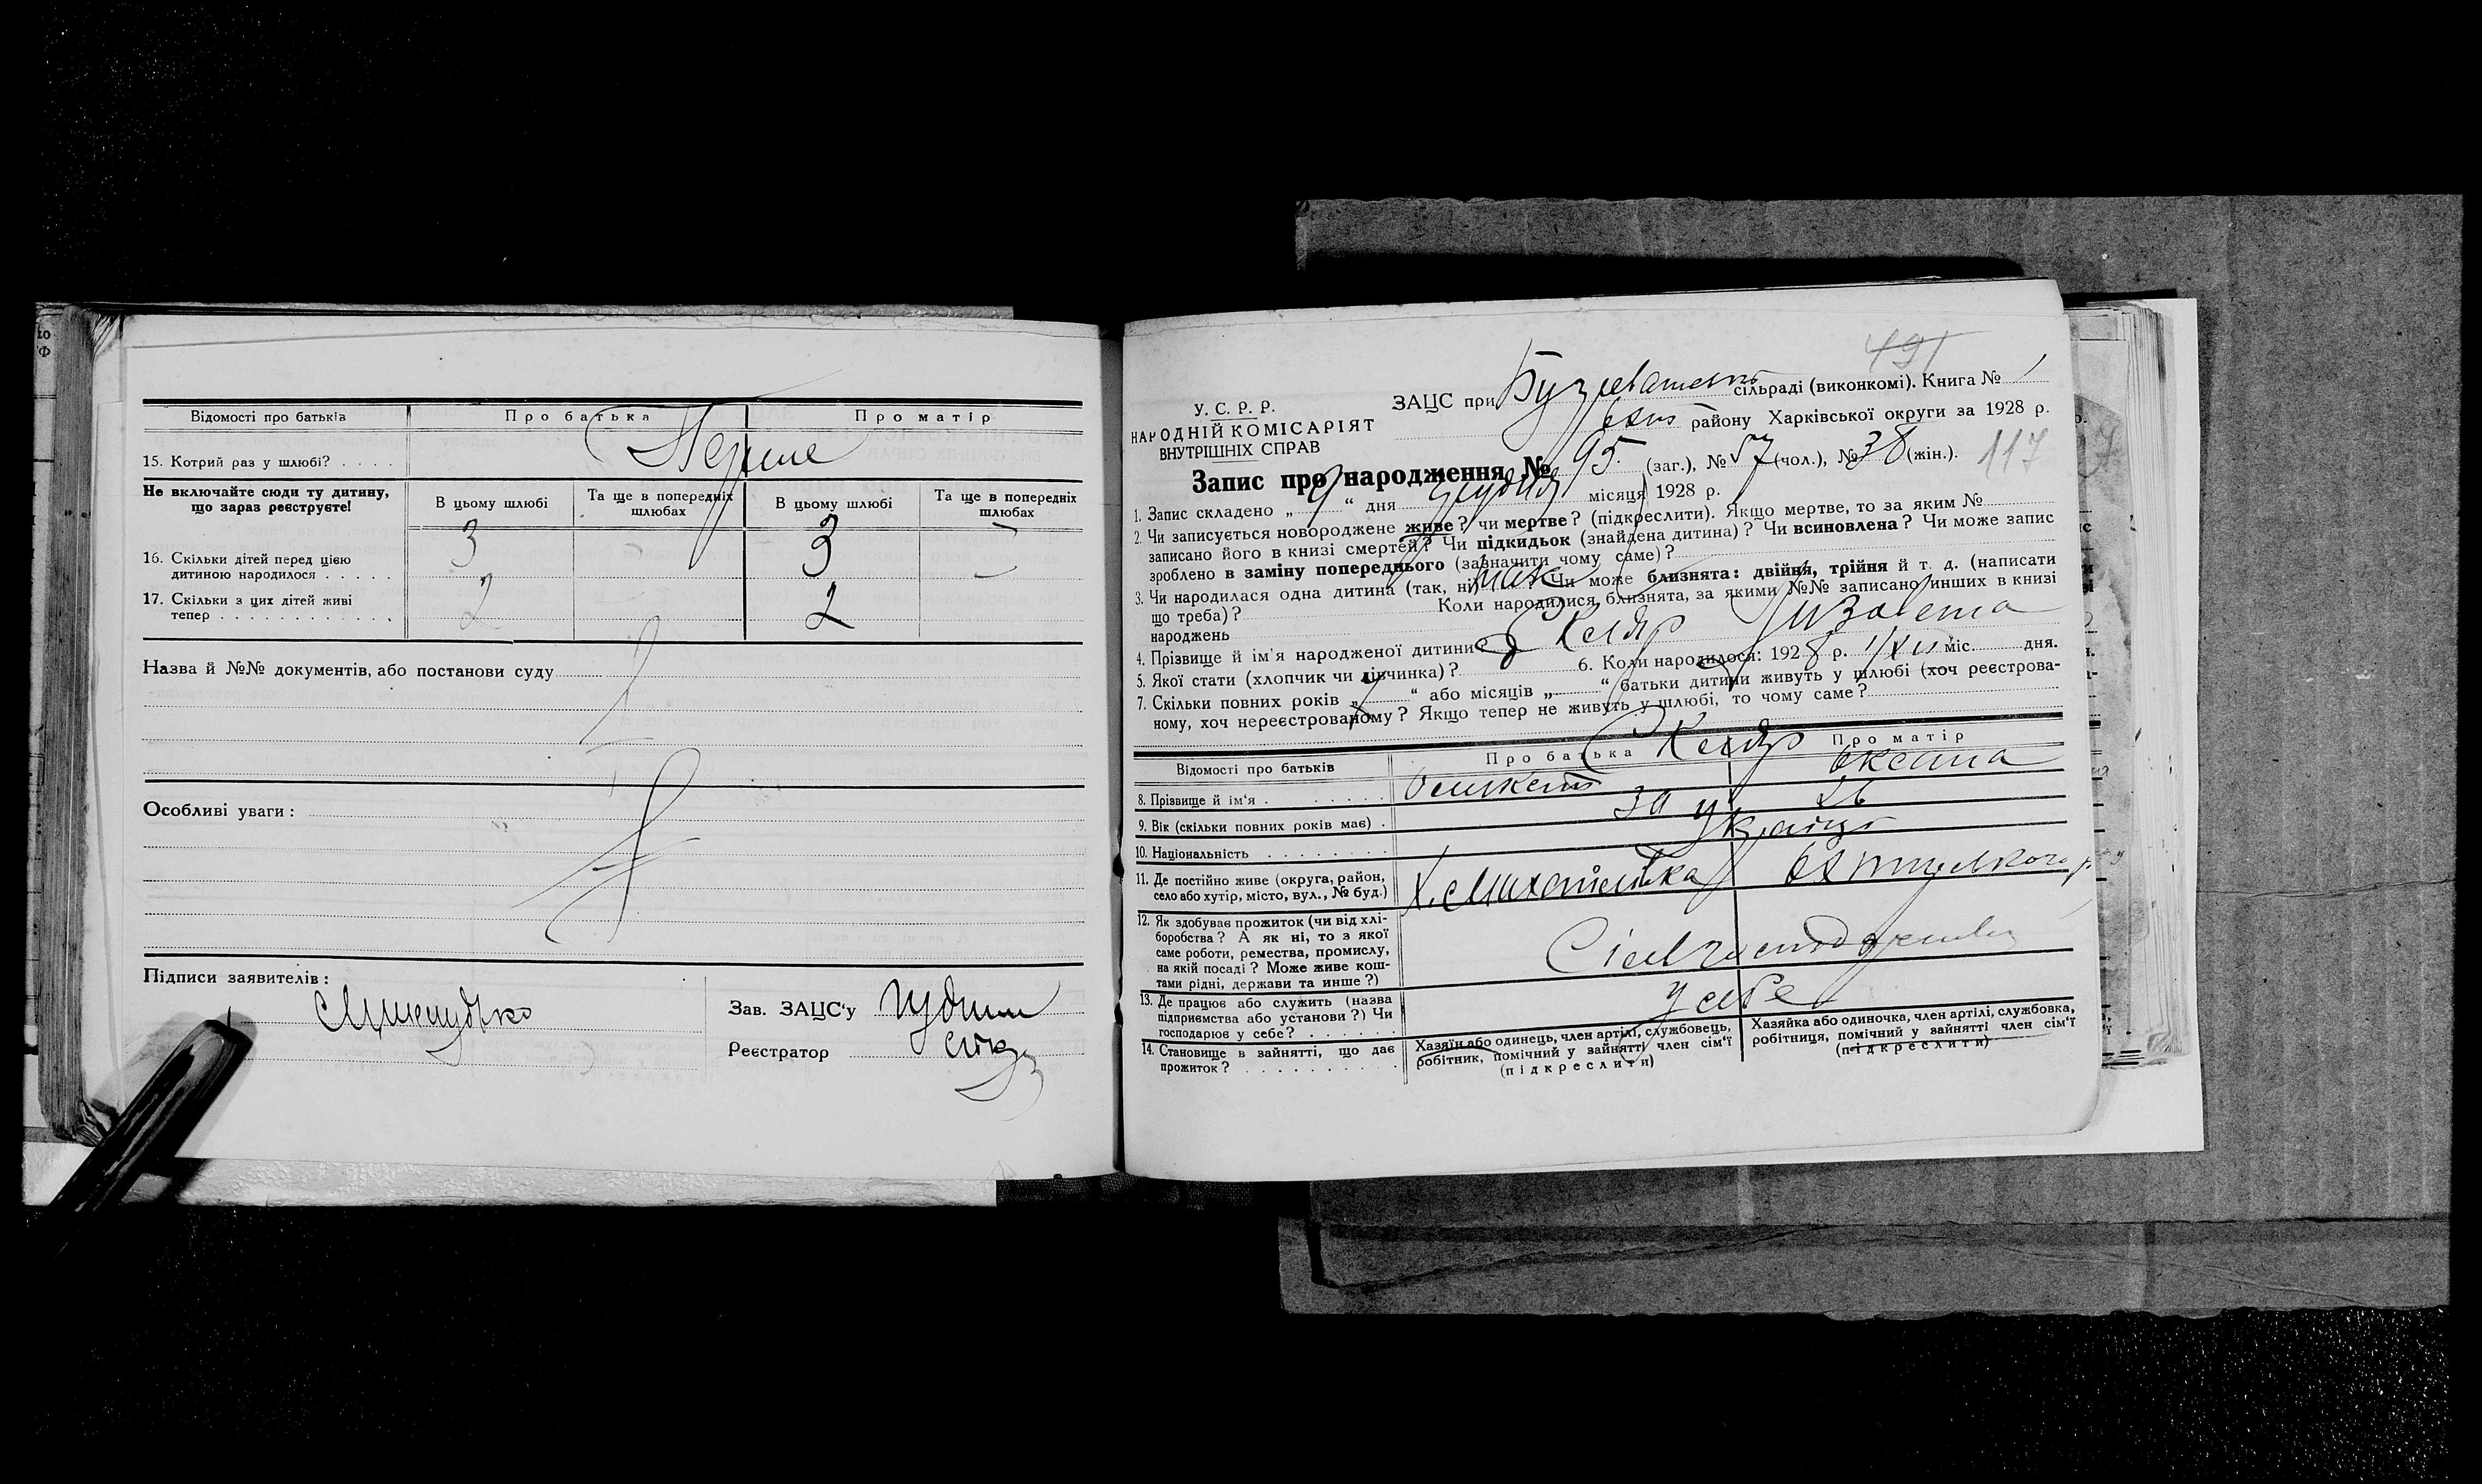 Відомості про батьків
Про батька
Про матір
15. Котрий раз у шлюбі? . . . .
Перше
Не включайте сюди ту дитину,
що зараз реєструєте!
В цьому шлюбі
Та ще в попередніх
шлюбах
В цьому шлюбі
Та ще в попередніх
шлюбах
16. Скільки дітей перед цією
дитиною народилося . . . . .
3
3
17. Скільки з цих дітей живі
тепер . . . . . . . . . . . .
2
2
Назва й №№ документів, або постанови суду
Особливі уваги:
Підписи заявителів:
Зав. ЗАЦС'у
Реєстратор
491
У. С. Р. Р.
НАРОДНІЙ КОМІСАРІЯТ
ВНУТРІШНІХ СПРАВ
ЗАЦС при сільраді (виконкомі). Книга № 1
району Харківської округи за 1928 р.
Запис про народження № 95 (заг.), № 57 (чол.), № 38 (жін.).
117
1. Запис складено „ 9 “ дня грудня місяця 1928 р.
2. Чи записується новороджене живе? чи мертве? (підкреслити). Якщо мертве, то за яким №
записано його в книзі смертей? Чи підкидьок (знайдена дитина)? Чи всиновлена? Чи може запис
зроблено в заміну попереднього (зазначити чому саме)?
3. Чи народилася одна дитина (так, ні) так ? Чи може близнята: двійня, трійня й т. д. (написати
що треба)? Коли народилися близнята, за якими №№ записано инших в книзі
народжень
4. Прізвище й ім'я народженої дитини
5. Якої стати (хлопчик чи дівчинка)? 6. Коли народилося: 1928 р. 1/XII міс. дня.
7. Скільки повних років „ “ або місяців „ “ батьки дитини живуть у шлюбі (хоч реєстрова-
ному, хоч нереєстрованому? Якщо тепер не живуть у шлюбі, то чому саме?
Відомості про батьків
Про батька
Про матір
8. Прізвище й ім'я . . . . . . .
Оксана
9. Вік (скільки повних років має) .
30
26
10. Національність . . . . . . . .
Українці
11. Де постійно живе (округа, район,
село або хутір, місто, вул., № буд.)
х. Михайлівка
12. Як здобуває прожиток (чи від хлі-
боробства? А як ні, то з якої
саме роботи, ремества, промислу,
на якій посаді? Може живе кош-
тами рідні, держави та инше?)
13. Де працює або служить (назва
підприємства або установи?) Чи
господарює у себе? . . . . . . .
у себе
14. Становище в зайнятті, що дає
прожиток? . . . . . . . . . . .
Хазяїн або одинець, член артілі, службовець,
робітник, помічний у зайнятті член сім'ї
(підкреслити)
Хазяйка або одиночка, член артілі, службовка,
робітниця, помічний у зайнятті член сім'ї
(підкреслити)